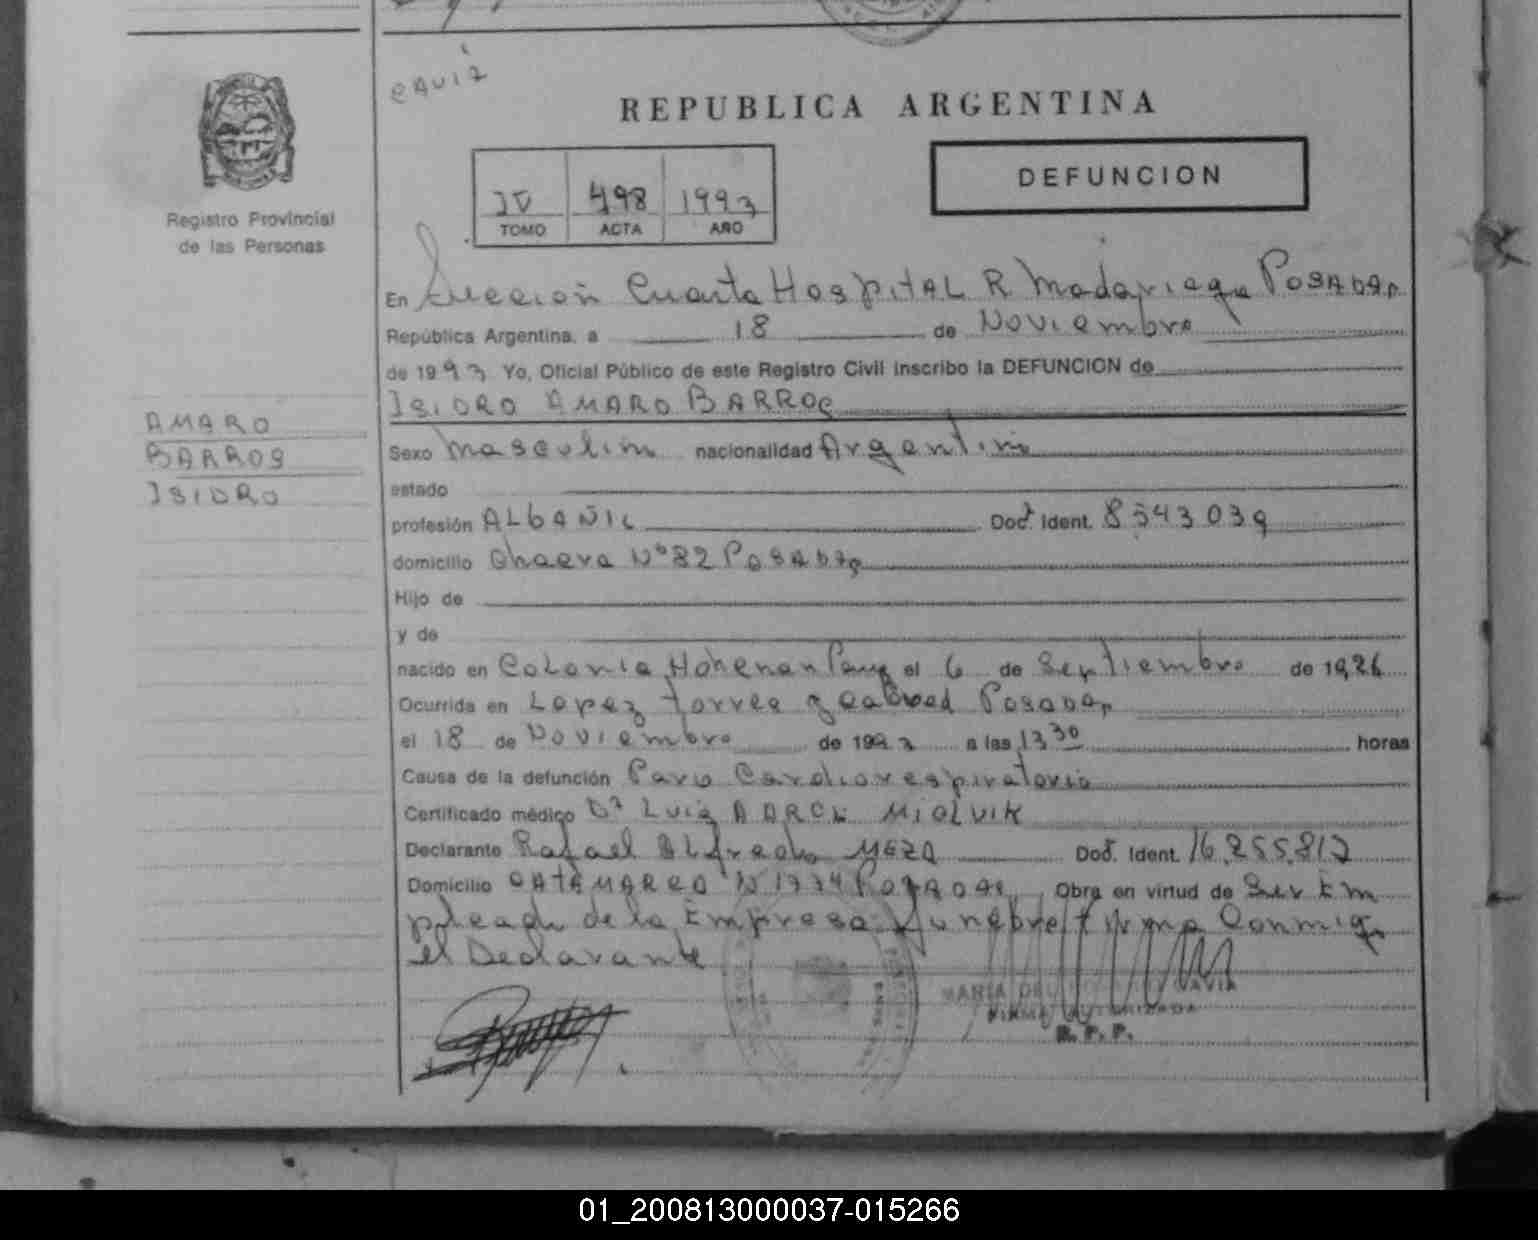 CAVIA
REPUBLICA ARGENTINA
DEFUNCION
IV 498 1993
TOMO ACTA AÑO
Registro Provincial
de las Personas
En Sección Cuarta Hospital R Madariaga Posadas
República Argentina, a 18 de Noviembre
de 1993 Yo, Oficial Público de este Registro Civil inscribo la DEFUNCION de
ISIDRO AMARO BARROS
AMARO
BARROS
ISIDRO
Sexo Masculino nacionalidad Argentino
estado
profesión ALBAÑIL Doc. Ident. 8543039
domicilio N° 82 Posadas
Hijo de
y de
nacido en Colonia Hohenau el 6 de Septiembre de 1926
Ocurrida en Lopez Torres y Cabred Posadas
el 18 de Noviembre de 1993 a las 13 30 horas
Causa de la defunción Paro Cardiorespiratorio
Certificado médico Dr Luis MIOLVIK
Declarante Rafael Alfredo MEZA Doc. Ident. 16.255.812
Domicilio CATAMARCA N 1774 Posadas Obra en virtud de Ser Em
pleado de la Empresa Funebre Firma Conmigo
el Declarante
MARIA DEL CAVIA
FIRMA AUTORIZADA
R. P. P.
01_200813000037-015266